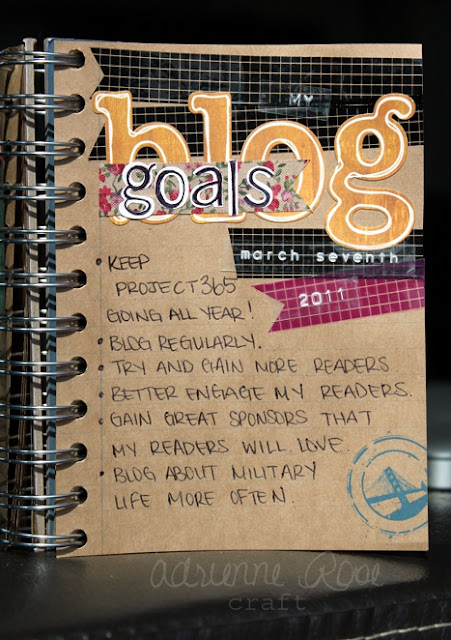 MY
blog
goals
march seventh
2011
• KEEP
PROJECT365
GOING ALL YEAR!
• BLOG REGULARLY.
• TRY AND GAIN MORE READERS
• BETTER ENGAGE MY READERS.
• GAIN GREAT SPONSORS THAT
MY READERS WILL LOVE.
• BLOG ABOUT MILITARY
LIFE MORE OFTEN.
adrienne Rose
craft